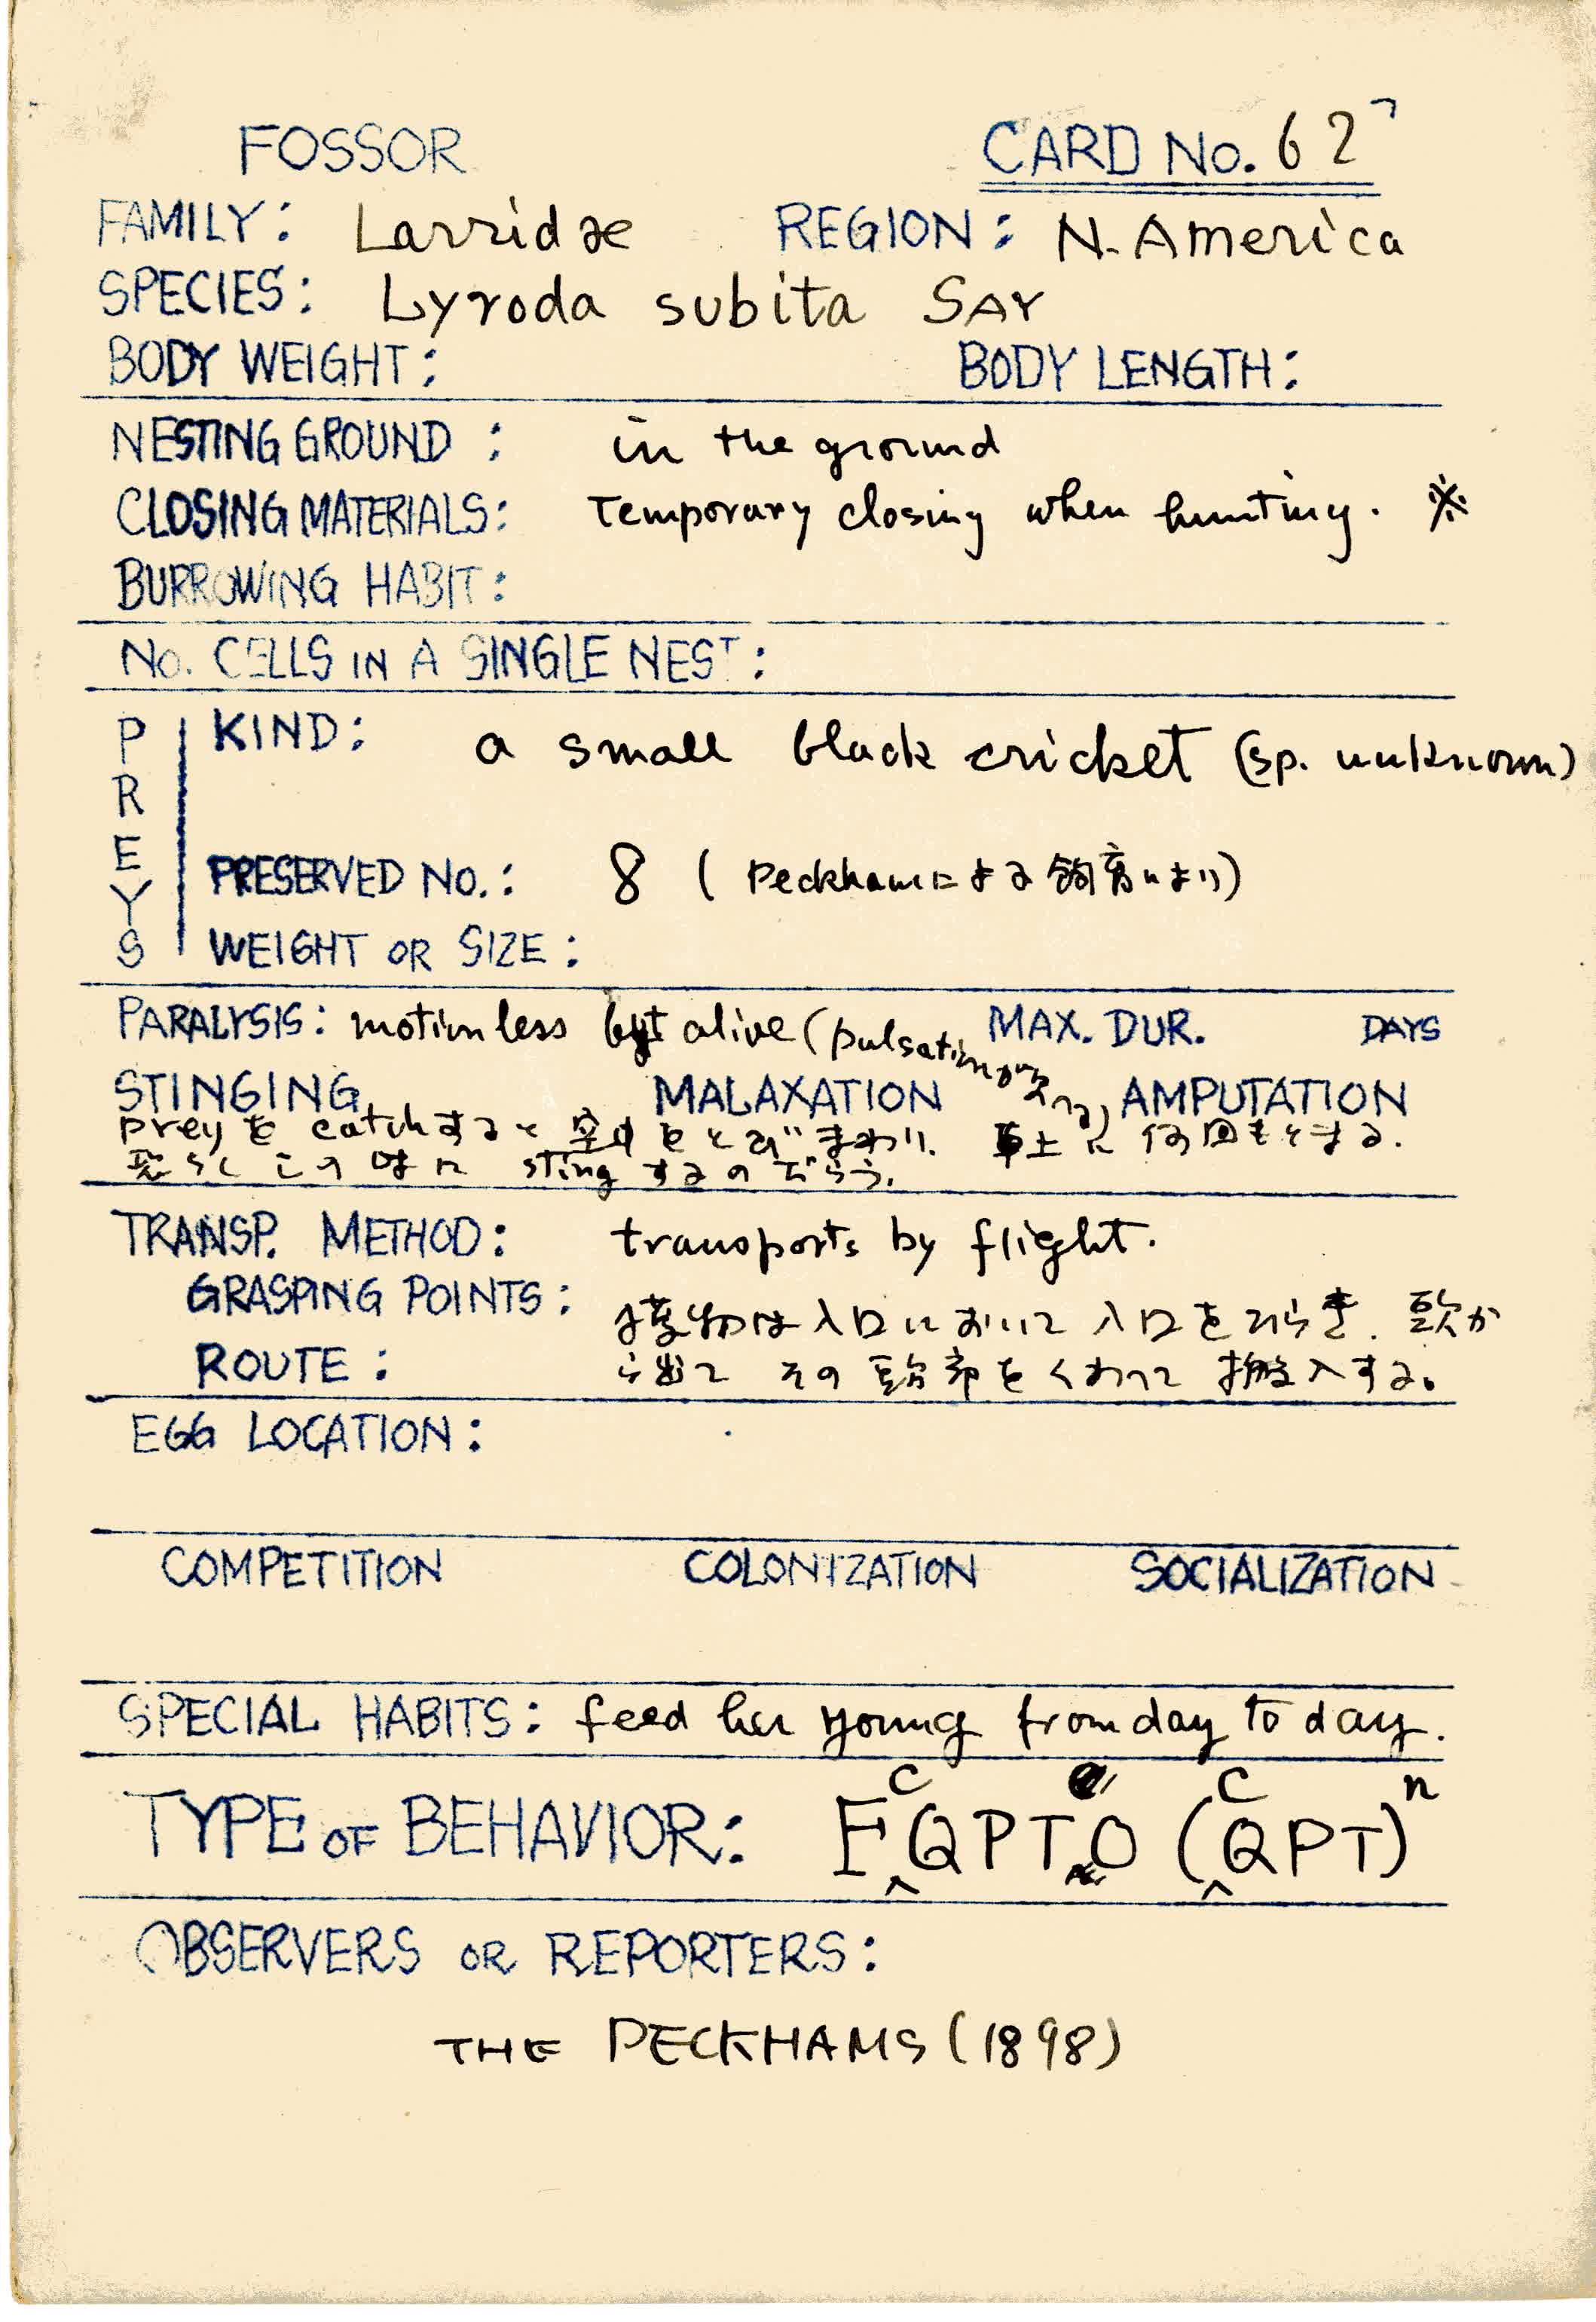 FOSSOR CARD No. 62
FAMILY: Larridae REGION: N. America
SPECIES: Lyroda subita SAY
BODY WEIGHT: BODY LENGTH:
NESTING GROUND: in the ground
CLOSING MATERIALS: Temporary closing when hunting. ※
BURROWING HABIT:
No. CELLS IN A SINGLE NEST:
PREYS
KIND: a small black cricket (sp. unknown)
PRESERVED No.: 8 (Peckhamによる飼育により)
WEIGHT OR SIZE:
PARALYSIS: motionless but alive (pulsation MAX. DUR. DAYS
STINGING MALAXATION AMPUTATION
preyをcatchすると空中をとびまわり、草上に何回もとまる.
恐らくこの時にstingするのだらう.
TRANSP. METHOD: transports by flight.
GRASPING POINTS: 獲物は入口において入口をひらき、頭か
ROUTE: ら出てその頭部をくわへて搬入する。
EGG LOCATION:
COMPETITION COLONIZATION SOCIALIZATION
SPECIAL HABITS: feed her young from day to day.
TYPE OF BEHAVIOR: F^C QPTO (^C QPT)^n
OBSERVERS OR REPORTERS:
THE PECKHAMS (1898)